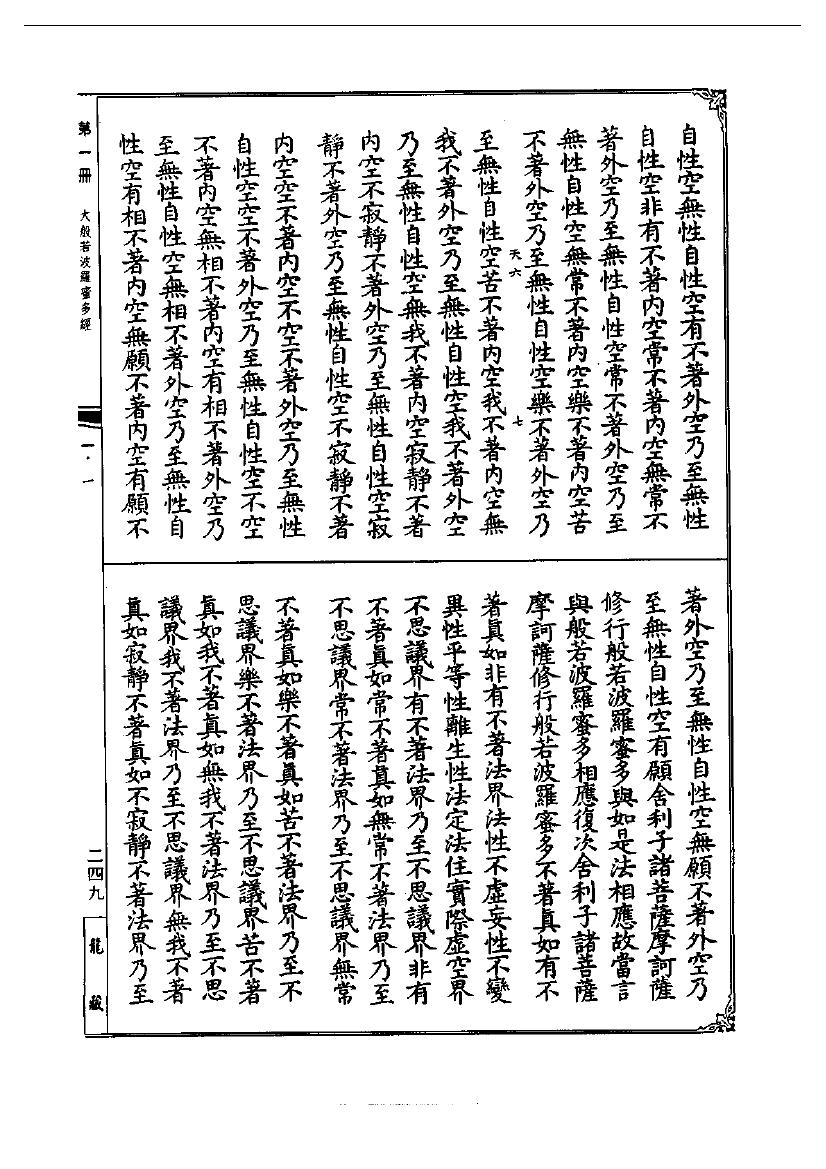 自性空無性自性空有不著外空乃至無性
自性空非有不著內空常不著內空無常不
著外空乃至無性自性空常不著外空乃至
無性自性空無常不著內空樂不著內空苦
不著外空乃至無性自性空樂不著外空乃
天六 七
至無性自性空苦不著內空我不著內空無
我不著外空乃至無性自性空我不著外空
乃至無性自性空無我不著內空寂靜不著
內空不寂靜不著外空乃至無性自性空寂
靜不著外空乃至無性自性空不寂靜不著
內空空不著內空不空不著外空乃至無性
自性空空不著外空乃至無性自性空不空
不著內空無相不著內空有相不著外空乃
至無性自性空無相不著外空乃至無性自
性空有相不著內空無願不著內空有願不
著外空乃至無性自性空無願不著外空乃
至無性自性空有願舍利子諸菩薩摩訶薩
修行般若波羅蜜多與如是法相應故當言
與般若波羅蜜多相應復次舍利子諸菩薩
摩訶薩修行般若波羅蜜多不著真如有不
著真如非有不著法界法性不虛妄性不變
異性平等性離生性法定法住實際虛空界
不思議界有不著法界乃至不思議界非有
不著真如常不著真如無常不著法界乃至
不思議界常不著法界乃至不思議界無常
不著真如樂不著真如苦不著法界乃至不
思議界樂不著法界乃至不思議界苦不著
真如我不著真如無我不著法界乃至不思
議界我不著法界乃至不思議界無我不著
真如寂靜不著真如不寂靜不著法界乃至
第一冊 大般若波羅蜜多經
一·一
二四九
龍藏